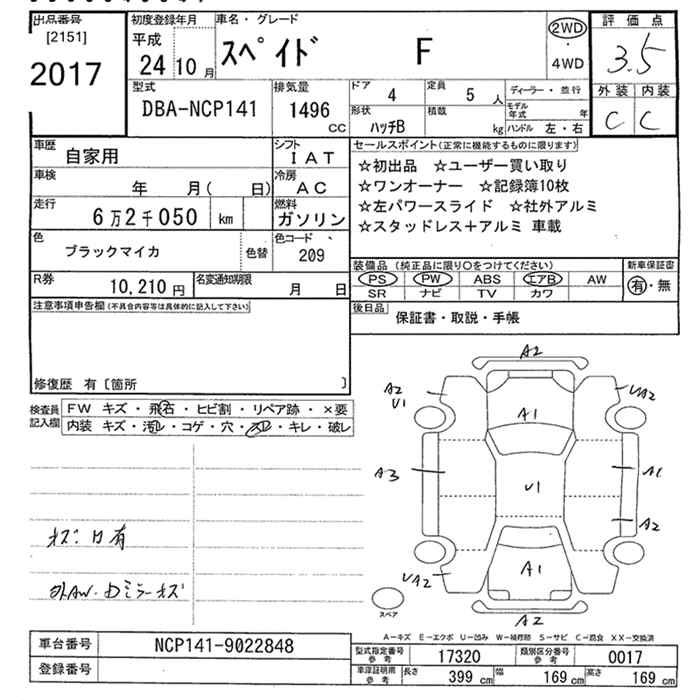 出品番号
[2151]
2017
初度登録年月
平成
24 10 月
車名・グレード
スペイド F
2WD
・
4WD
評価点
3.5
外装 内装
C C
型式
DBA-NCP141
排気量
1496
CC
ドア
4
定員
5 人
ディーラー・並行
形状
ハッチB
積載
kg
モデル年式 年
ハンドル 左・右
車歴
自家用
シフト
IAT
車検
年 月( 日)
冷房
AC
走行
6万2千050 km
燃料
ガソリン
色
ブラックマイカ
色替
色コード
209
R券
10,210 円
名変通知期限
月 日
セールスポイント(正常に機能するものに限ります)
☆初出品 ☆ユーザー買い取り
☆ワンオーナー ☆記録簿10枚
☆左パワースライド ☆社外アルミ
☆スタッドレス+アルミ 車載
装備品 (純正品に限り○をつけてください)
PS PW ABS エアB AW
SR ナビ TV カワ
新車保証書
有・無
後日品
保証書・取説・手帳
注意事項申告欄(不具合内容等は具体的に記入して下さい)
修復歴 有〔箇所 〕
検査員
記入欄
FW キズ・飛石・ヒビ割・リペア跡・×要
内装 キズ・汚レ・コゲ・穴・スレ・キレ・破レ
A2
A2
U1
A1
UA2
A3
U1
A1
A2
UA2
A1
A2
スペア
A－キズ E－エクボ U－凹み W－補修跡 S－サビ C－腐食 XX－交換済
車台番号
NCP141-9022848
登録番号
型式指定番号
参考
17320
類別区分番号
参考
0017
車庫証明用
参考
長さ
399 cm
幅
169 cm
高さ
169 cm